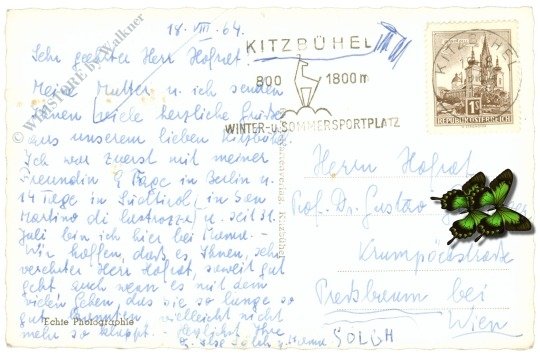 18. VIII. 64.
Sehr geehrter Herr Hofrat
Meine Mutter u. ich senden
Ihnen viele herzliche Grüße
aus unserem lieben Kitzbühel
Ich war zuerst mit meiner
Freundin 9 Tage in Berlin u.
14 Tage in Südtirol, in San
Martino di Castrozza u. seit 31.
Juli bin ich hier bei Mama.-
Wir hoffen, daß es Ihnen, sehr
verehrter Herr Hofrat, soweit gut
geht auch wenn es mit dem
vielen Gehen, das sie so lange so
gut konnten vielleicht nicht
mehr so klappt. - Herzlichst Ihre
Ilse Solch u. Mama
SOLCH
Echte Photographie
KITZBÜHEL
800 1800 m
WINTER-u. SOMMERSPORTPLATZ
KITZBÜHEL
1S
REPUBLIK ÖSTERREICH
Herrn Hofrat
Prof. Dr. Gustav
Krumpöckstraße
Pressbaum bei
Wien
© WIMSTORE by Walkner